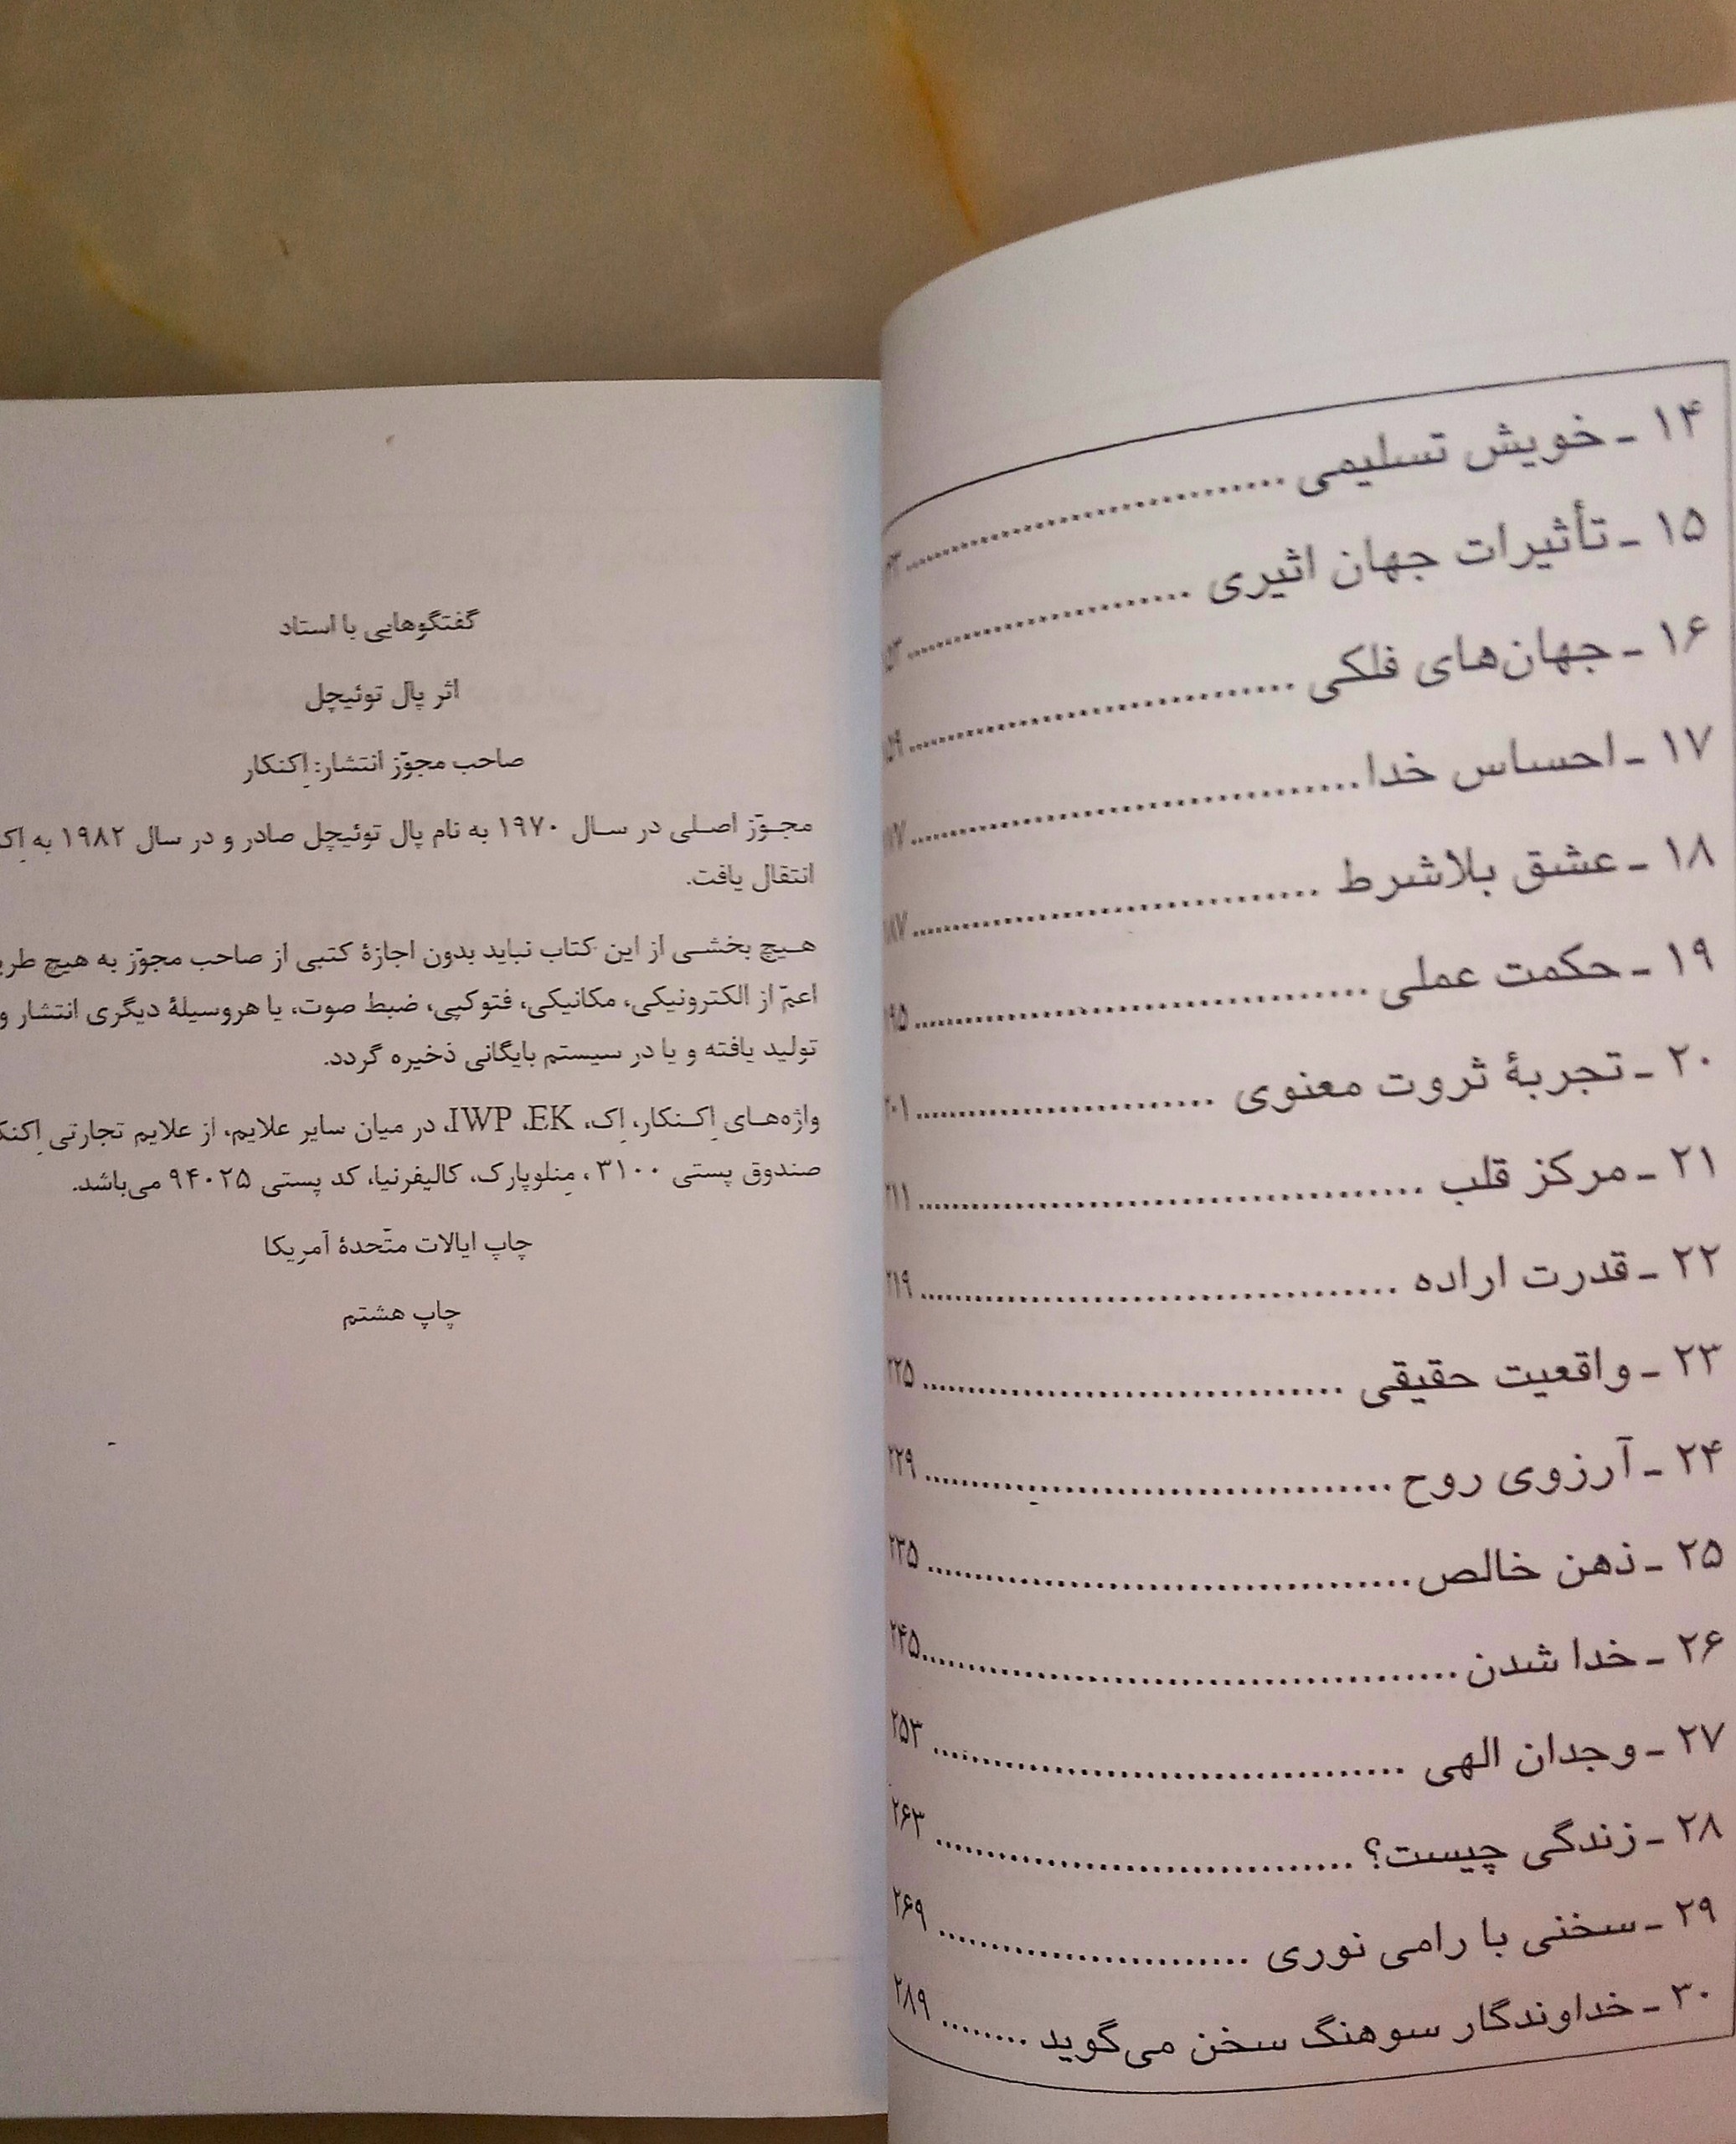 ۱۴ ـ خویش تسلیمی
۱۵ ـ تأثیرات جهان اثیری
۱۶ ـ جهان‌های فلکی
۱۷ ـ احساس خدا
۱۸ ـ عشق بلاشرط
۱۹ ـ حکمت عملی
۲۰ ـ تجربهٔ ثروت معنوی ۲۰۱
۲۱ ـ مرکز قلب ۲۱۱
۲۲ ـ قدرت اراده ۲۱۹
۲۳ ـ واقعیت حقیقی ۲۲۵
۲۴ ـ آرزوی روح ۲۲۹
۲۵ ـ ذهن خالص ۲۳۵
۲۶ ـ خدا شدن ۲۴۵
۲۷ ـ وجدان الهی ۲۵۳
۲۸ ـ زندگی چیست؟ ۲۶۳
۲۹ ـ سخنی با رامی نوری ۲۶۹
۳۰ ـ خداوندگار سوهنگ سخن می‌گوید ۲۸۹
گفتگوهایی با استاد
اثر پال توئیچل
صاحب مجوّز انتشار: اِکنکار
مجوّز اصلی در سال ۱۹۷۰ به نام پال توئیچل صادر و در سال ۱۹۸۲ به
انتقال یافت.
هیچ بخشی از این کتاب نباید بدون اجازهٔ کتبی از صاحب مجوّز به هیچ
اعمّ از الکترونیکی، مکانیکی، فتوکپی، ضبط صوت، یا هروسیلهٔ دیگری انتشار و
تولید یافته و یا در سیستم بایگانی ذخیره گردد.
واژه‌های اِکنکار، اِک، IWP ،EK، در میان سایر علایم، از علایم تجارتی
صندوق پستی ۳۱۰۰، مِنلوپارک، کالیفرنیا، کد پستی ۹۴۰۲۵ می‌باشد.
چاپ ایالات متّحدهٔ آمریکا
چاپ هشتم